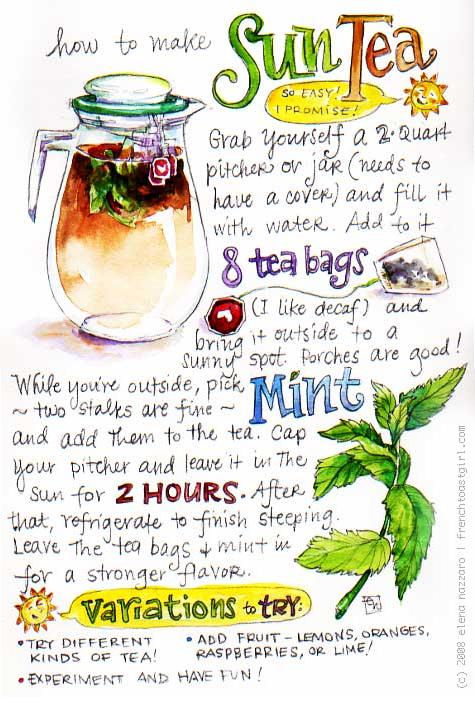 how to make Sun Tea
SO EASY!
I PROMISE!
Grab yourself a 2-Quart
pitcher or jar (needs to
have a cover) and fill it
with water. Add to it
8 tea bags
(I like decaf) and
bring it outside to a
sunny spot. Porches are good!
While you're outside, pick Mint
~ two stalks are fine ~
and add them to the tea. Cap
your pitcher and leave it in the
sun for 2 HOURS. After
that, refrigerate to finish steeping.
Leave the tea bags & mint in
for a stronger flavor.
Variations to TRY:
• TRY DIFFERENT
KINDS OF TEA!
• ADD FRUIT – LEMONS, ORANGES,
RASPBERRIES, OR LIME!
• EXPERIMENT AND HAVE FUN!
(c) 2008 elena nazzaro | frenchtoastgirl.com